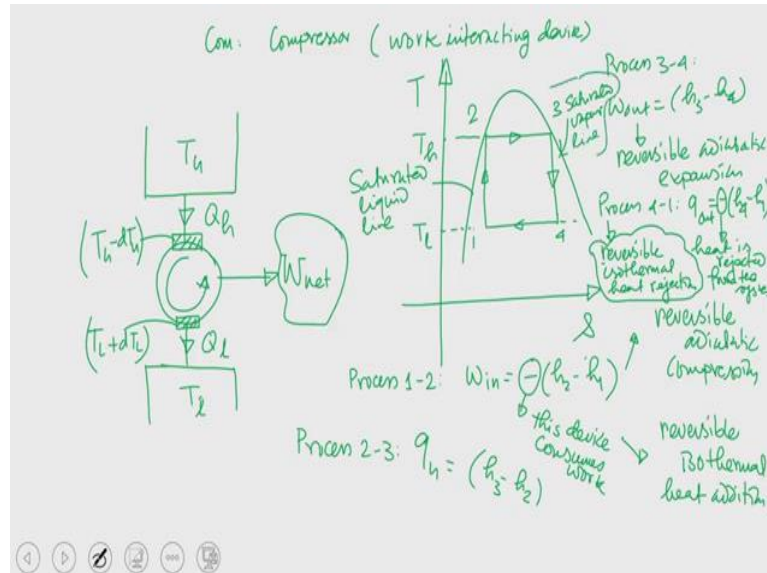 Com: Compressor (work interacting device)
T_h
Q_h
(T_h-dT_h)
W_net
(T_L+dT_L)
Q_L
T_L
T
2
3
T_h
T_L
1
4
S
Saturated
liquid
line
Saturated
vapor
line
Process 3-4:
W_out = (h_3-h_4)
reversible adiabatic
expansion
Process 4-1: q_out = -(h_4-h_1)
reversible
isothermal
heat rejection
heat is
rejected
from the
system
Process 1-2: W_in = -(h_2-h_1)
reversible
adiabatic
Compression
this device
consumes
work
Process 2-3: q_h = (h_3-h_2)
reversible
isothermal
heat addition